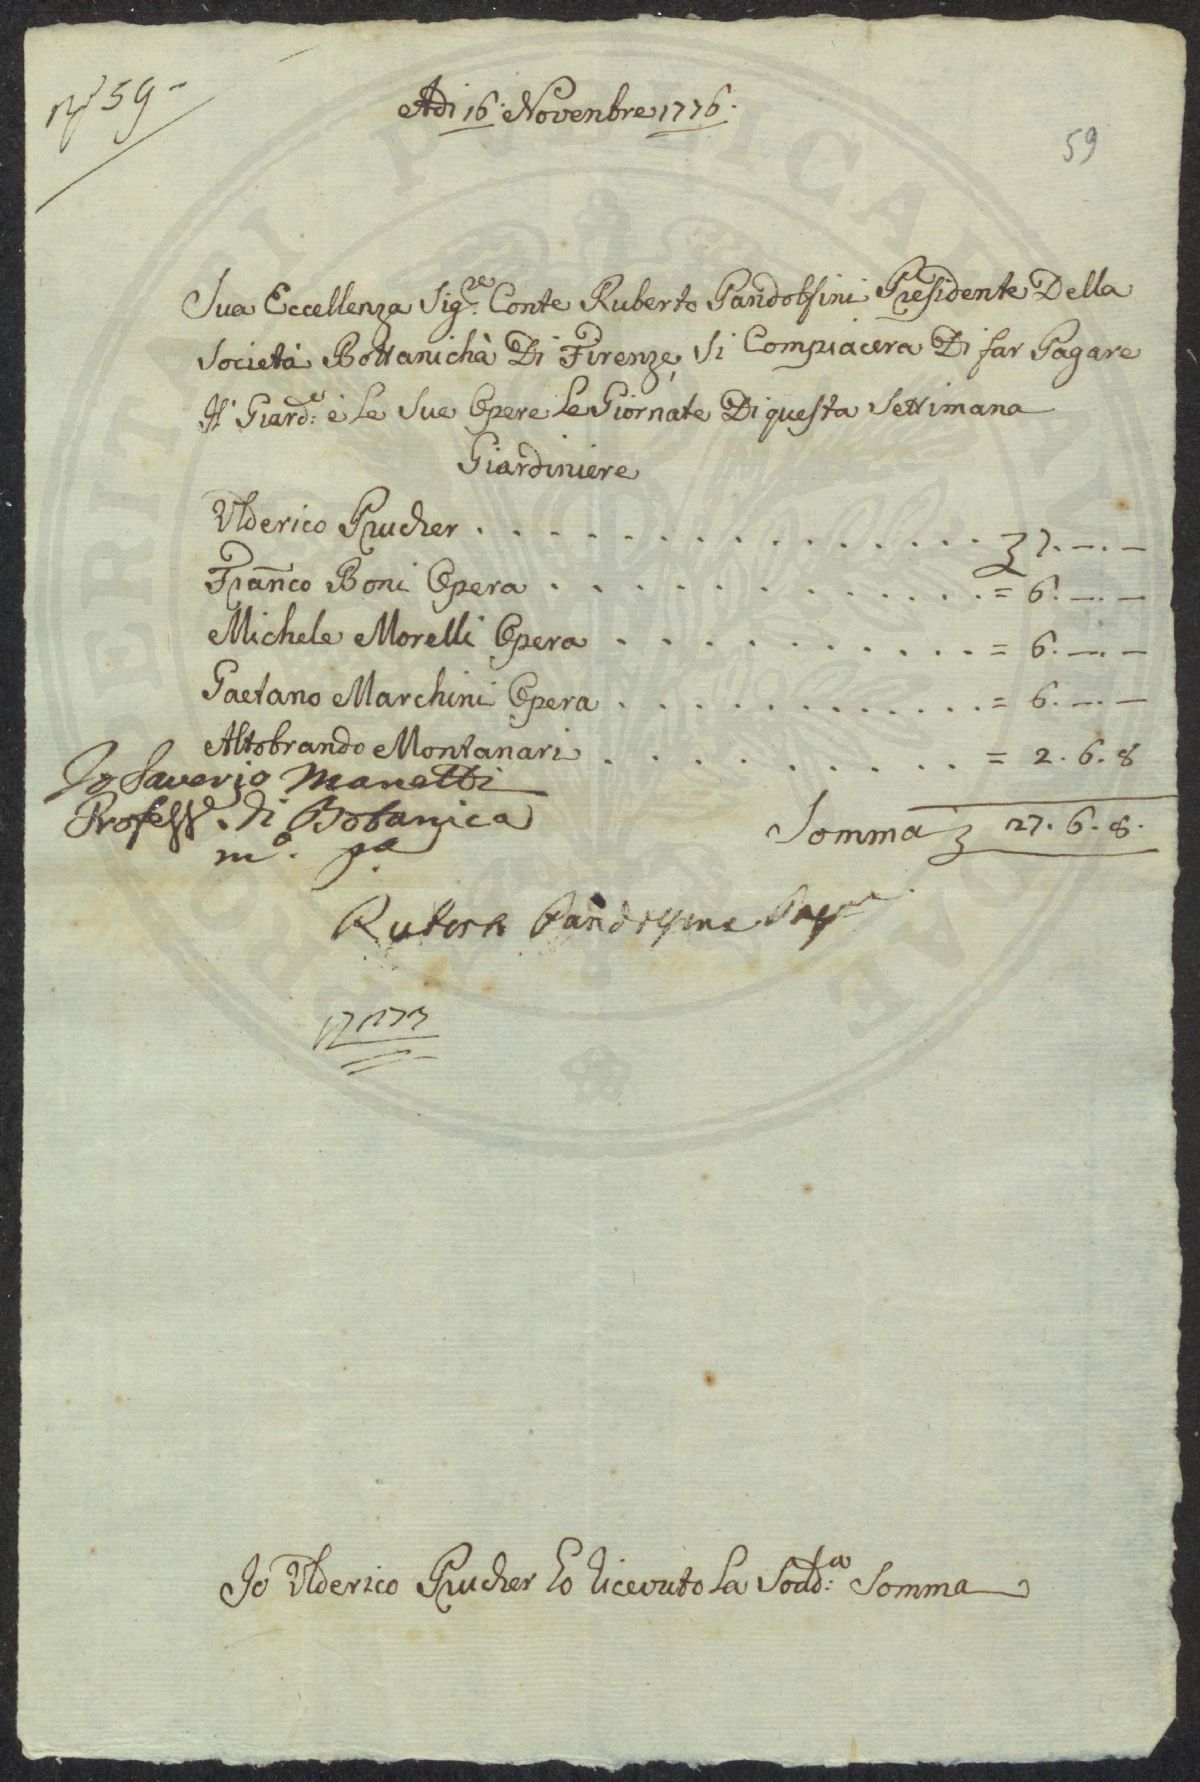 N.° 59
Adi 16: Novenbre 1776.
59
Sua Eccellenza Sig:re Conte Ruberto Pandolfini Presidente Della
Società Bottanichà Di Firenze, Si Compiacerà Di far Pagare
Il Giard:e è Le Sue Opere Le Giornate Di questa Settimana
Giardiniere
Ulderico Prucher . . . . . . . . . . . . . . . 7. —. —
Franco Boni Opera . . . . . . . . . . . . = 6. —. —
Michele Morelli Opera . . . . . . . . . . . = 6. —. —
Gaetano Marchini Opera . . . . . . . . . . . = 6. —. —
Altobrando Montanari . . . . . . . . . . = 2. 6. 8
Io Saverio Manetti
Profess.e di Botanica
m.o p.a
Somma 27. 6. 8.
Ruberto Pandolfini
Io Ulderico Prucher ho ricevuto La Sodd:a Somma
PROSPERITATI PUBLICAE